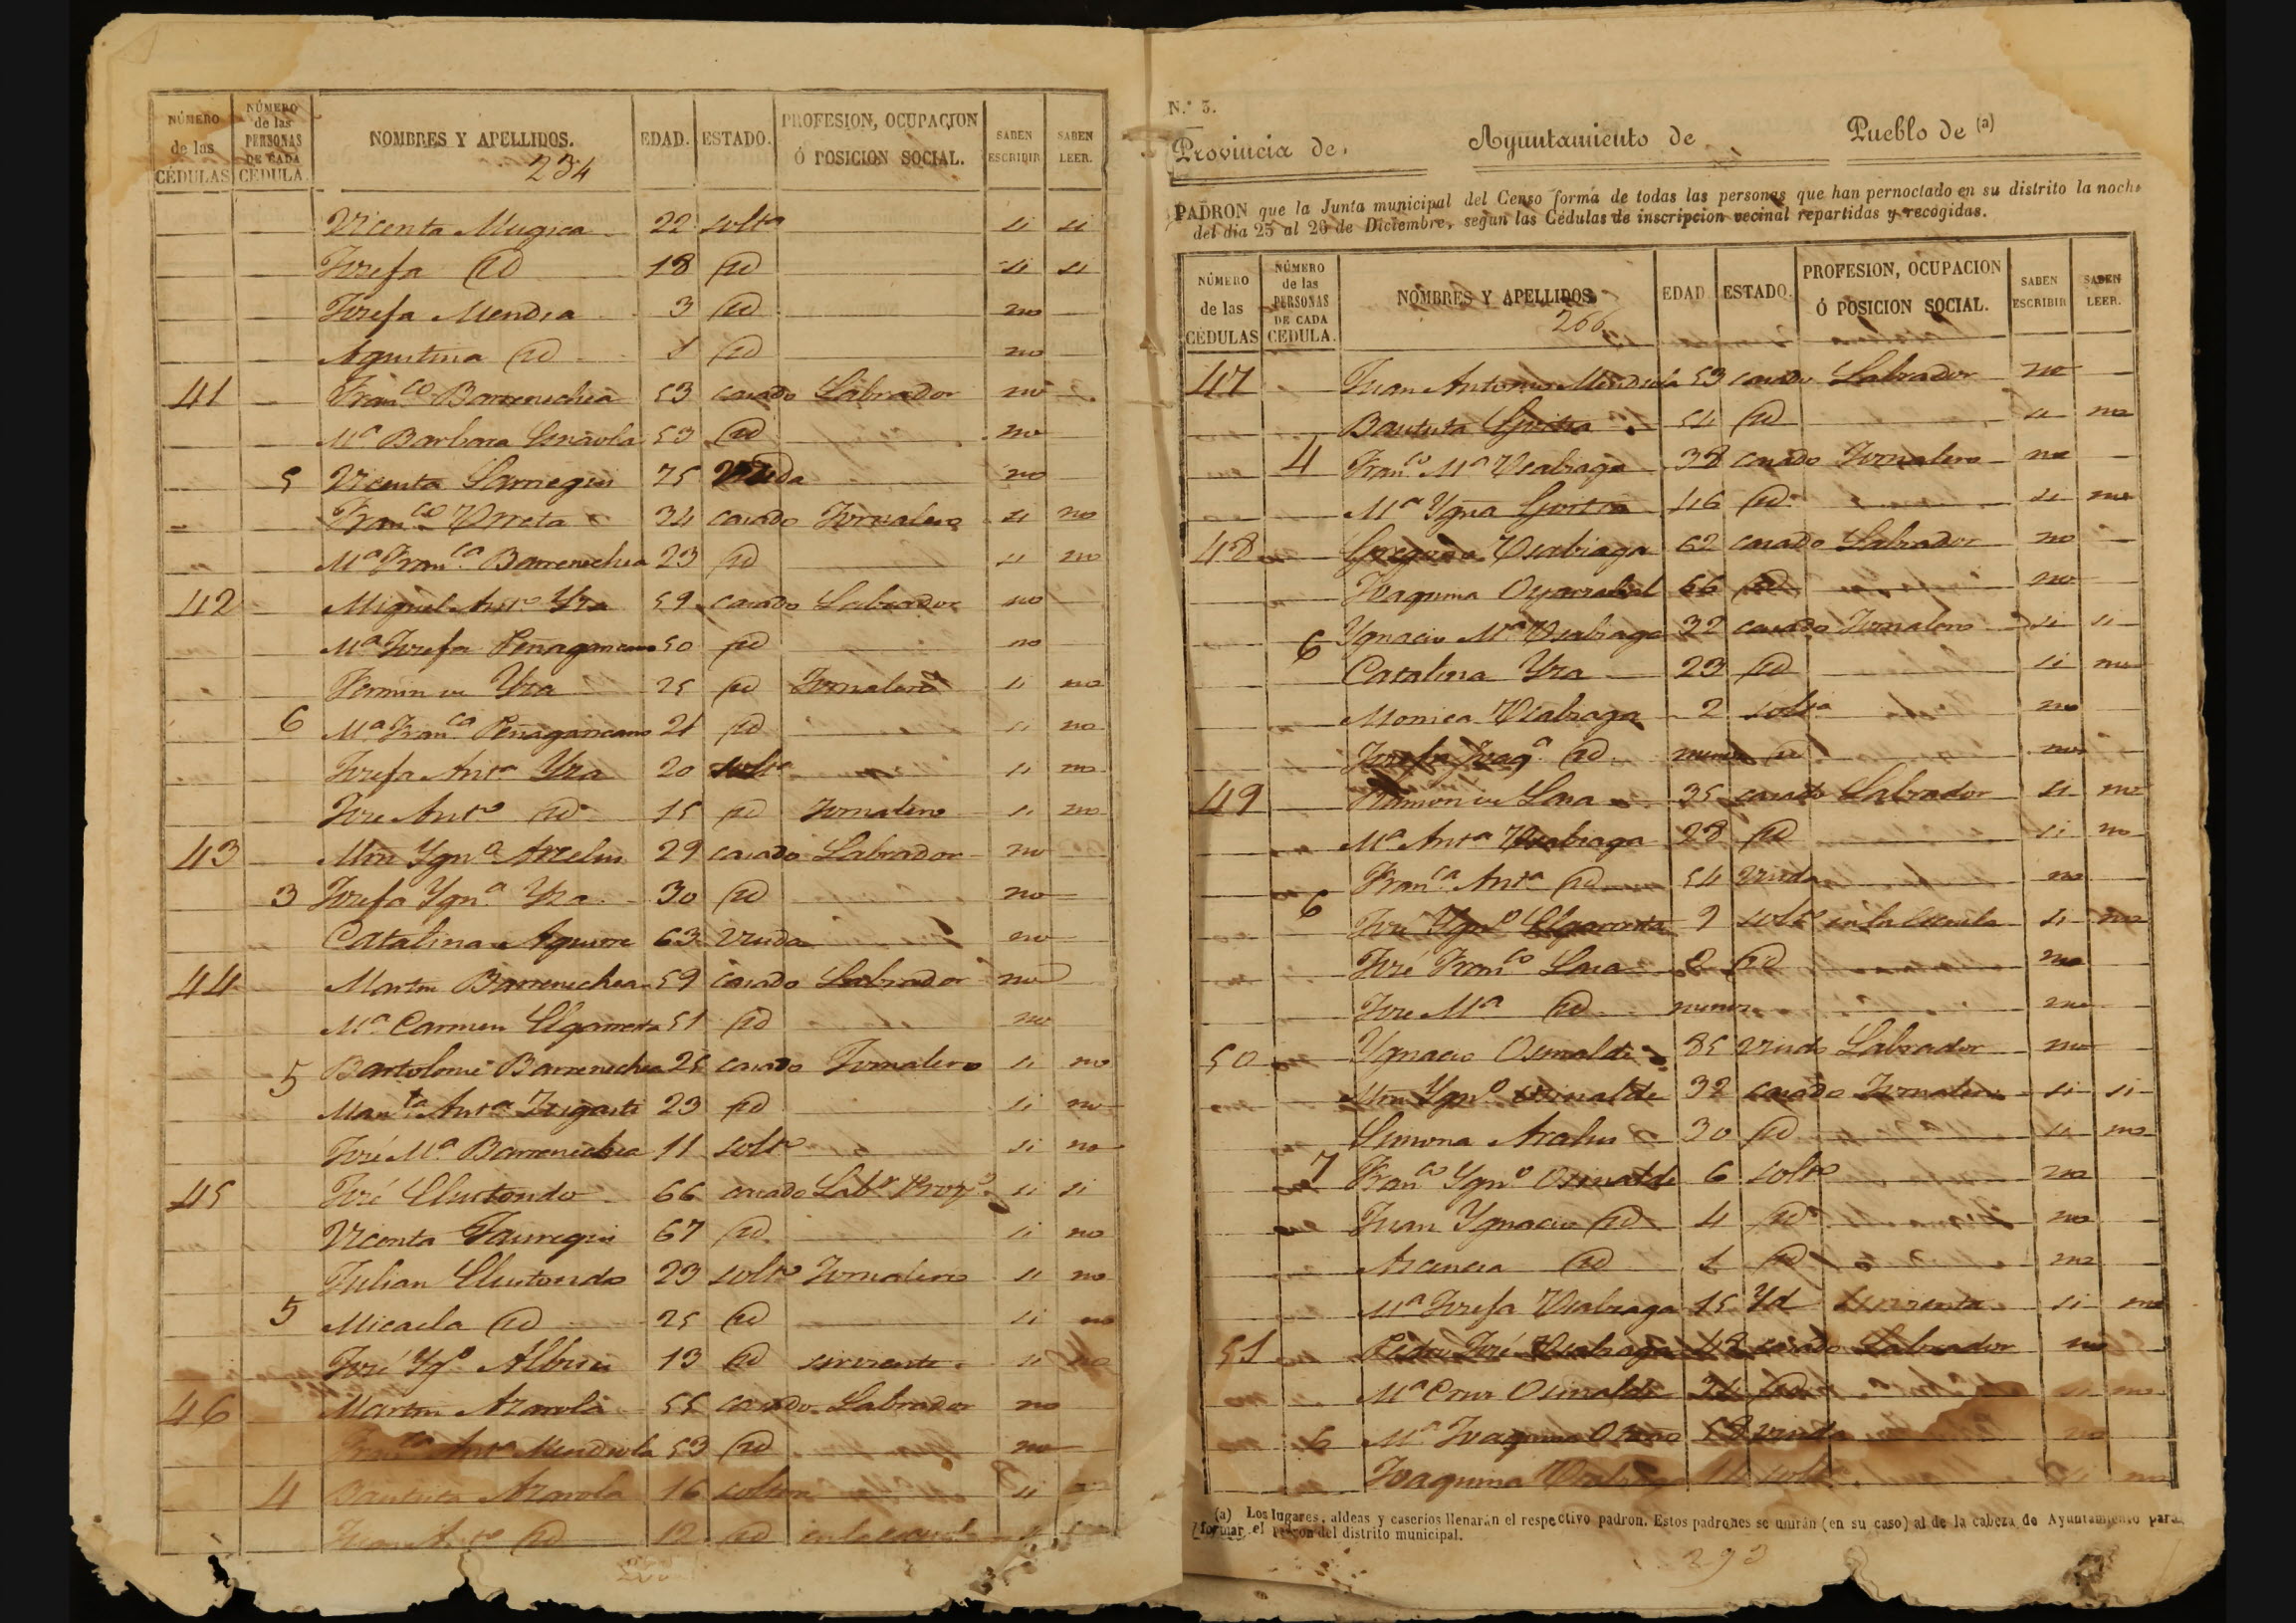 NÚMERO de las CÉDULAS | NÚMERO de las PERSONAS DE CADA CEDULA. | NOMBRES Y APELLIDOS. | EDAD. | ESTADO. | PROFESION, OCUPACION Ó POSICION SOCIAL. | SABEN ESCRIBIR | SABEN LEER.
234
Vicenta Mugica 22 solta si si
Josefa id 18 id si si
Josefa Mendia 3 id no
Agustina id 1 id no
41 Franco Barrenechea 53 casado Labrador no
Ma Barbara 53 id no
5 Vicenta Larregui 75 Viuda no
Franco Urreta 34 casado Jornalero si no
Ma Franca Barrenechea 23 id si no
42 Miguel Anto Yza 59 casado Labrador no
Ma Josefa Peñagaricano 50 id no
Fermin Yza 25 id Jornalero si no
6 Ma Franca Peñagaricano 21 id si no
Josefa Anta Yza 20 solta si no
Jose Anto id 15 id Jornalero si no
43 Ygna Arzelus 29 casado Labrador no
3 Josefa Ygna Yza 30 id no
Catalina Aguirre 63 viuda no
44 Martin Barrenechea 59 casado Labrador no
Ma Carmen Elgarresta 51 id no
5 Bartolomé Barrenechea 25 casado Jornalero si no
Anta 23 id si no
José Ma Barrenechea 11 solto si no
45 José Elustondo 66 casado Labr Propo si si
Vicenta Jauregui 67 id si no
Julian Elustondo 23 solto Jornalero si no
5 Micaela id 25 id si no
José Albisu 13 id sirviente si no
46 Martin Azarola 55 casado Labrador no
Franca Anta Mendiola 53 id no
4 Bautista Azarola 16 soltera si
Juan Anto id 12 id en la escuela
N.º 3.
Provincia de. Ayuntamiento de Pueblo de (a)
PADRON que la Junta municipal del Censo forma de todas las personas que han pernoctado en su distrito la noche
del dia 25 al 26 de Diciembre, segun las Cédulas de inscripcion vecinal repartidas y recogidas.
NÚMERO de las CÉDULAS | NÚMERO de las PERSONAS DE CADA CEDULA. | NOMBRES Y APELLIDOS | EDAD. | ESTADO. | PROFESION, OCUPACION Ó POSICION SOCIAL. | SABEN ESCRIBIR | SABEN LEER.
266
47 Juan Antonio Mendiola 53 casado Labrador no
Bautista Goitia 54 id si no
4 Franco Ma Usabiaga 38 casado Jornalero no
Ma Ygna Goitia 46 id si no
48 Gregorio Usabiaga 62 casado Labrador no
Joaquina Oyarzabal 66 id no
6 Ygnacio Ma Usabiaga 32 casado Jornalero si si
Catalina Yza 23 id si no
Monica Usabiaga 2 solta no
Josefa Joaqa id id no
49 Ramon Lasa 35 casado Labrador si no
Ma Anta Usabiaga 28 id si no
Franca Anta id 54 viuda no
6 José Ygno Elgarresta 9 solto en la escuela si no
José Franco Lasa 2 id no
Jose Ma id no
50 Ygnacio Osinalde 85 viudo Labrador no
Ygno Osinalde 32 casado Jornalero si si
Simona Arzelus 30 id si no
7 Franco Ygno Osinalde 6 solto no
Juan Ygnacio id 4 id no
id 1 id no
Ma Josefa Usabiaga 15 Yd sirvienta si no
51 Pedro José Usabiaga 48 casado Labrador no
Ma Cruz Osinalde 34 id si no
6 Ma Joaquina 58 viuda no
Joaquina Usabiaga 14 solta si no
(a) Los lugares, aldeas y caserios llenarán el respectivo padron. Estos padrones se unirán (en su caso) al de la cabeza de Ayuntamiento para
formar el padron del distrito municipal.
293